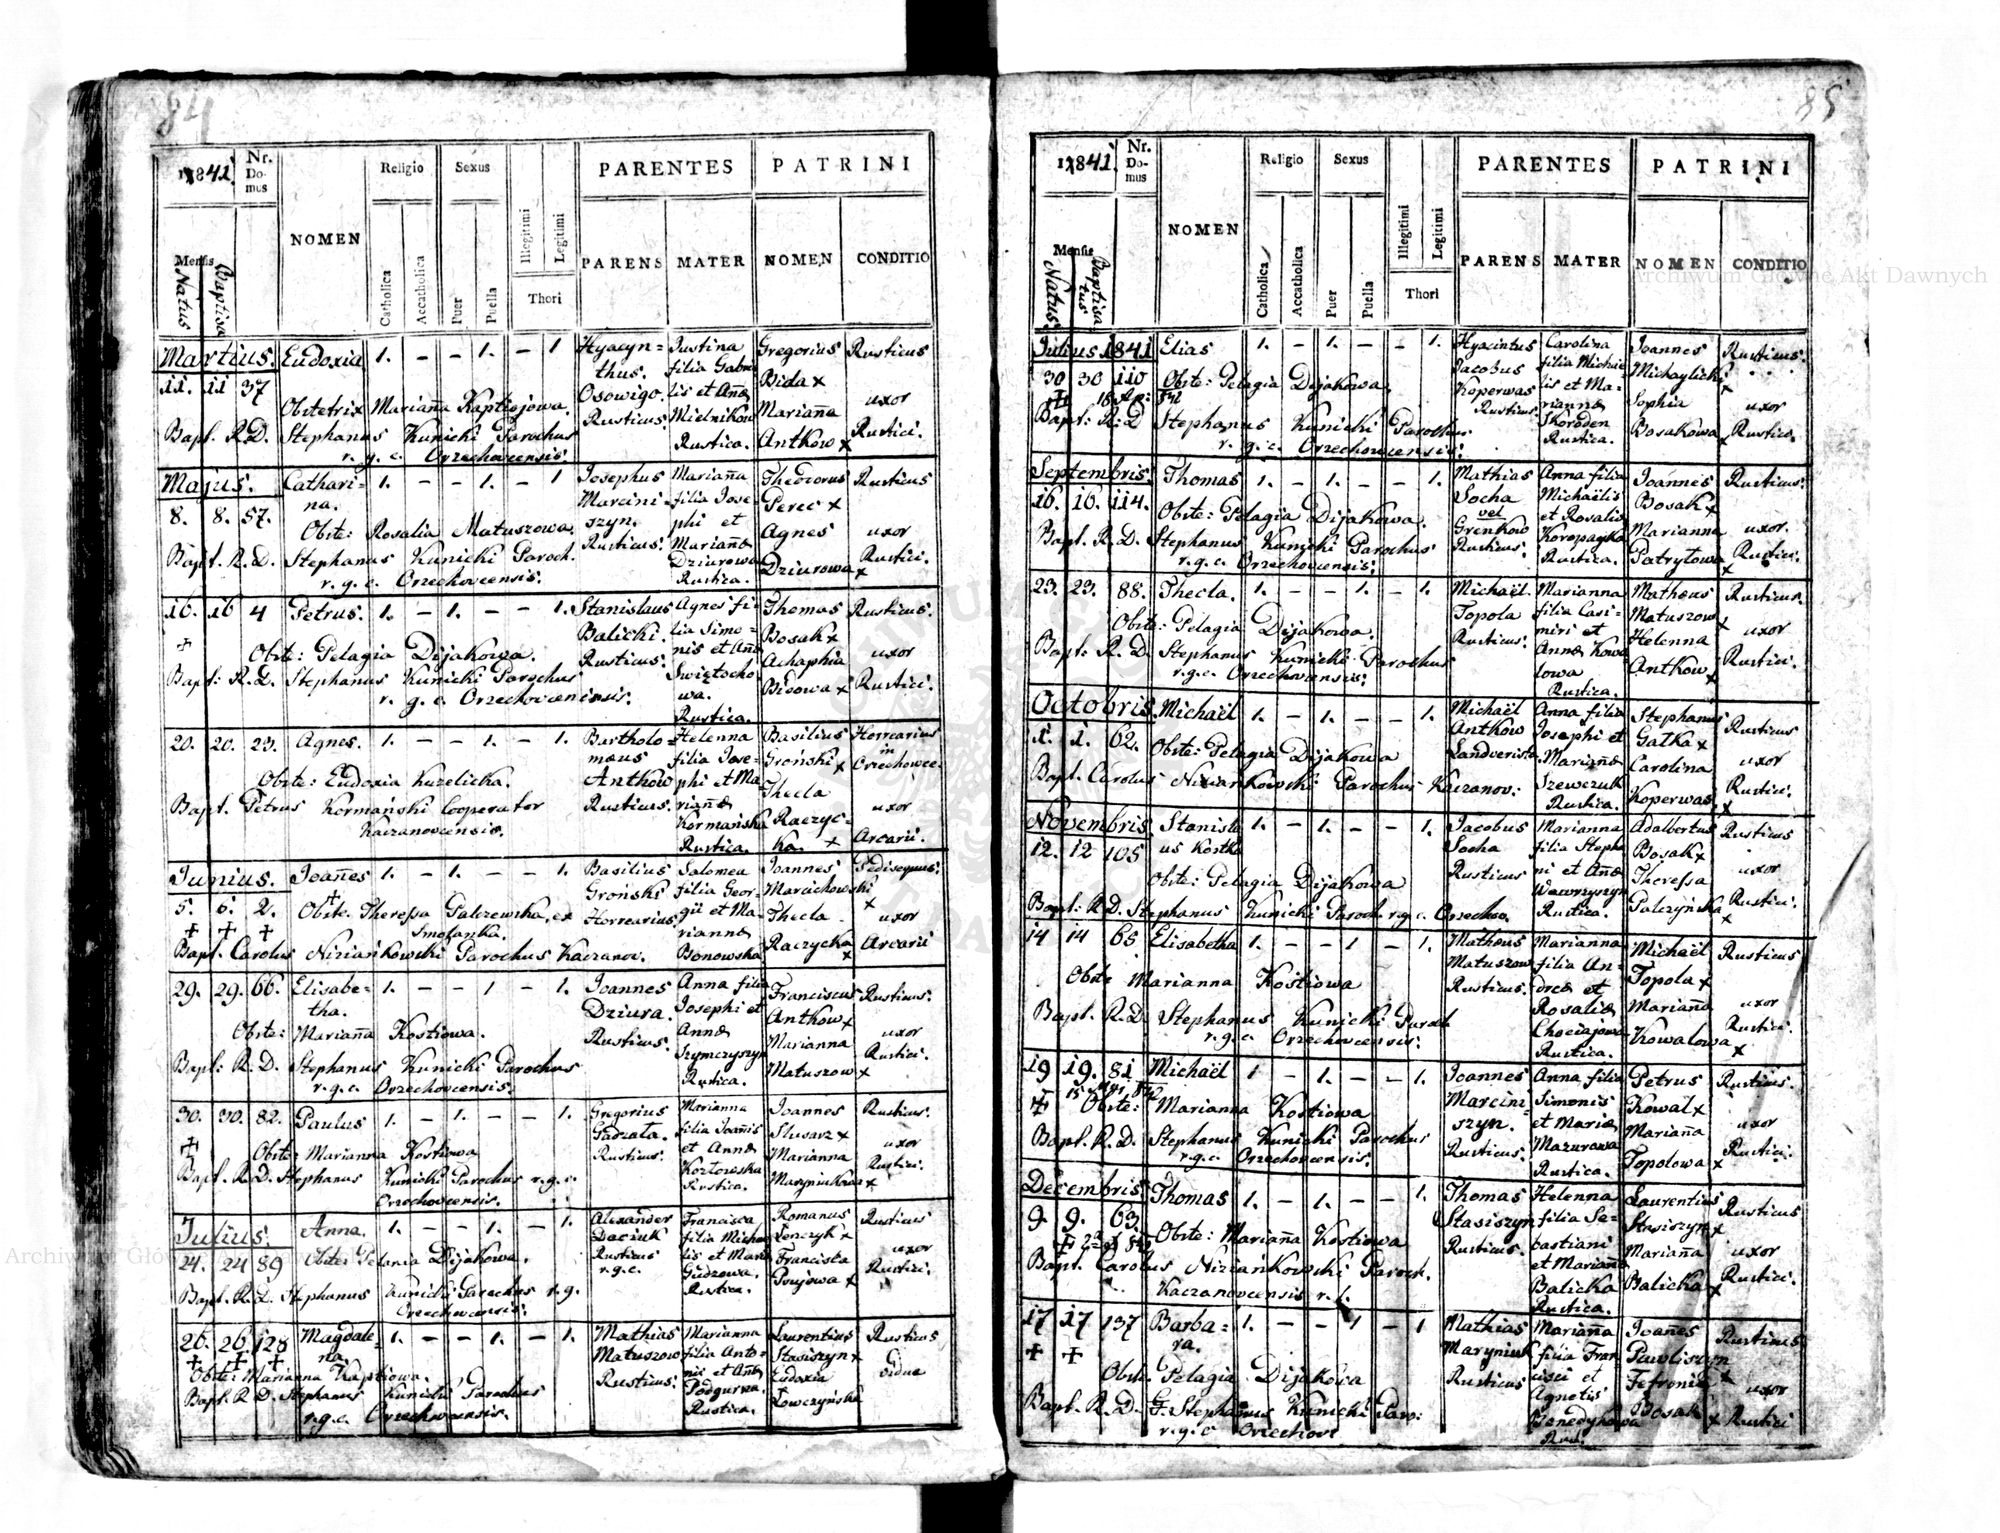 84
1841. Nr. Domus NOMEN Religio Sexus PARENTES PATRINI
Mensis Natus Baptisa Catholica Accatholica Puer Puella Illegitimi Legitimi Thori PARENS MATER NOMEN CONDITIO
Martius. Eudoxia 1. – – 1. – 1 Hyacyn= Justina Gregorius Rusticus
11. 11 37 thus. filia Gabrie Bida x
Osowigo. lis et Annæ
Obstetrix Marianna Kaptiojowa. Rusticus Mielnikow Marianna uxor
Bapt. R.D. Stephanus Kunicki Parochus Rustica. Antkow x Rustici.
r. g. c. Orzechovcensis.
Majus. Cathari= 1. – – 1. – 1 Josephus Marianna Theodorus Rusticus
na. Marcini= filia Jose= Perec x
8. 8. 57. szyn. phi et
Obste: Rosalia Matuszowa. Rusticus. Mariannæ Agnes uxor
Bapt. R.D. Stephanus Kunicki Paroch. Dziurowa Dziurowa x Rustici.
r. g. c. Orzechovcensis. Rustica.
16. 16 4 Petrus. 1. – 1. – – 1. Stanislaus Agnes fi= Thomas Rusticus.
Balicki. lia Simo= Bosak x
+ Obste: Pelagia Dijakowa. Rusticus. nis et Annæ Achaphia uxor
Bapt: R.D. Stephanus Kunicki Parochus Swiętocho Bidowa x Rustici.
r. g. c. Orzechovcensis. wa.
Rustica.
20. 20. 23. Agnes. 1. – – 1. – 1. Bartholo= Helenna Basilius Horrearius
mæus filia Jose= Groński x in Orzechowce.
Obste: Eudoxia Kuzelicka. Antkow phi et Ma= Thecla
Bapt. Petrus Kormański Cooperator Rusticus. riannæ uxor
Kaczanovcensis. Kormańska Raczyc=
Rustica. ka. x Arcarii.
Junius. Joannes 1. – 1. – – 1. Basilius Salomea Joannes Pedisequus.
+ Groński filia Geor= Marcichowski x
5. 6. 2. Obste. Theressa Galczewska ex Horrearius gii et Ma= Thecla uxor
+ + + Smolanka. riannæ
Bapt. Carolus Niziańkowski Parochus Kaczanov. Bonowska Raczycka x Arcarii
29. 29. 66. Elisabe= 1. – – 1 – 1. Joannes Anna filia Franciscus Rusticus.
tha. Dziura. Josephi et Antkow x
Obste: Marianna Kostiowa. Rusticus. Annæ Marianna uxor
Bapt: R.D. Stephanus Kunicki Parochus Szymczyszyn Matuszow x Rustici.
r. g. c. Orzechovcensis. Rustica.
30. 30. 82. Paulus 1. – 1. – – 1. Gregorius Marianna Joannes Rusticus.
+ Gadzała. filia Joannis Slusarz x
Obste: Marianna Kostiowa Rusticus. et Annæ Marianna uxor
Bapt. R.D. Stephanus Kunicki Parochus r. g. c. Kozłowska Maryniukowa x Rustici.
Orzechovcensis. Rustica.
Julius. Anna. 1. – – 1. – 1. Alexander Francisca Romanus Rusticus
Daciuk filia Micha Lenczyk x
24. 24 89 Obste: Pelania Dijakowa. Rusticus lis et Mariæ Francisca uxor
Bapt. R.D. Stephanus Kunicki Parochus r. g. r.g.c. Gudzowa. x Rustici.
Orzechovcensis. Rustica.
26. 26. 128 Magdale= 1. – – 1. – 1. Mathias Marianna Laurentius Rusticus
+ + + na. Matuszow filia Anto= Stasiszyn x
Obste: Marianna Kaptiowa. Rusticus. nii et Annæ Eudoxia viduæ
Bapt. R D. Stephanus Kunicki Parochus Podgurna. Towczyńska
r. g. c. Orzechovcensis. Rustica.
85
1841. Nr. Domus NOMEN Religio Sexus PARENTES PATRINI
Mensis Natus Baptisatus Catholica Accatholica Puer Puella Illegitimi Legitimi Thori PARENS MATER NOMEN CONDITIO
Julius 1841 Elias 1. – 1. – – 1. Hyacintus Carolina Joannes Rusticus.
30 30 110 Jacobus filia Michae Michaylicki x
Obste: Pelagia Dijakowa. Koperwas lis et Ma= Sophia uxor
+ Rusticus. riannæ
Bapt: R.D Stephanus Kunicki Parochus Skoroden Bosakowa x Rustici.
r. g. c. Orzechovcensis. Rustica.
Septembris. Thomas 1. – 1. – – 1. Mathias Anna filia Joannes Rusticus.
16. 16. 114. Socha Michaëlis Bosak x
Obste: Pelagia Dijakowa. vel et Rosaliæ Marianna uxor.
Bapt. R.D. Stephanus Kunicki Parochus Grenkow Koropayka Patrytowa x Rustici.
r. g. c. Orzechovcensis. Rusticus. Rustica.
23. 23. 88. Thecla. 1. – – 1 – 1. Michaël Marianna Mathæus Rusticus.
Topola filia Casi= Matuszow x
Obste: Pelagia Dijakowa. Rusticus. miri et Helenna uxor
Bapt: R.D. Stephanus Kunicki Parochus Annæ Kowa Antkow x Rustici.
r. g. c. Orzechovcensis. lowa
Rustica.
Octobris. Michaël 1. – 1. – – 1. Michaël Anna filia Stephanus Rusticus
1. 1. 62. Antkow Josephi et Gałka x
Obste: Pelagia Dijakowa Landverista. Mariannæ Carolina uxor
Bapt. Carolus Niziańkowski Parochus Kaczanov: Szewczuk Koperwas x Rustici.
Rustica.
Novembris Stanisla 1. – 1. – – 1. Jacobus Marianna Adalbertus Rusticus
12. 12 105 us Kostka Socha filia Stepha Bosak x
Obste: Pelagia Dijakowa Rusticus ni et Annæ Theressa uxor
Bapt: R.D. Stephanus Kunicki Paroch. r.g.c. Orzecho. Wawrzyszyn Palczyńska x Rustici.
Rustica.
14 14 65 Elisabetha 1. – – 1 – 1. Mathæus Marianna Michaël Rusticus
Matuszow filia An= Topola x
Obste Marianna Kostiowa Rusticus. dreæ et Marianna uxor
Bapt: R.D. Stephanus Kunicki Paroch Rosaliæ Kowalowa x Rustici.
r. g. c. Orzechovcensis. Chociajowa
Rustica.
19 19. 81 Michaël 1 – 1. – – 1. Joannes Anna filia Petrus Rusticus.
Marcini= Simonis Kowal x
+ Obste: Marianna Kostiowa szyn. et Mariæ Marianna uxor
Bapt. R.D. Stephanus Kunicki Parochus Rusticus. Mazurowa Topolowa x Rustici.
r.g.c. Orzechovcensis. Rustica.
Decembris. Thomas 1. – 1. – – 1. Thomas Helenna Laurentius Rusticus
9. 9. 63. Stasiszyn filia Se= Stasiszyn x
Obste: Marianna Kostiowa Rusticus. bastiani Marianna uxor
Bapt. Carolus Niziańkowski Paroch. et Mariannæ Balicka x Rustici.
Kaczanovcensis r. l. Balicka
Rustica.
17 17 137 Barba= 1. – – 1 – 1 Mathias Marianna Joannes Rusticus
+ + ra. Maryniuk filia Fran Pawliszyn x
Obste. Pelagia Dijakowa Rusticus cisci et Fefronia uxor
Bapt. R.D. G. Stephanus Kunicki Paro: Agnetis Bosak x Rustici
r. g. c Orzechovc Benedykowa
Rust.
Archiwum Główne Akt Dawnych